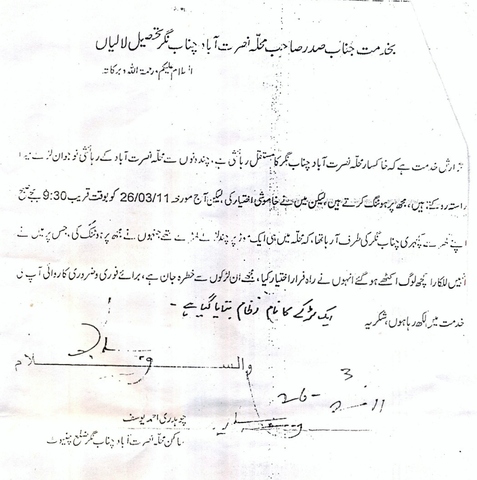 بخدمت جناب صدر صاحب محلہ نصرت آباد چناب نگر تحصیل لالیاں
السلام علیکم ورحمۃ اللہ وبرکاتہ
گزارش خدمت ہے کہ خاکسار محلہ نصرت آباد چناب نگر کا مستقل رہائشی ہے، چند دنوں سے محلہ نصرت آباد کے رہائشی نوجوان لڑکے میرا
راستہ روکتے ہیں، مجھ پر ہوٹنگ کرتے ہیں، لیکن میں نے خاموشی اختیار کی لیکن آج مورخہ 26/03/11 کو بوقت قریب 9:30 بجے صبح
اپنے گھر سے کچہری چناب نگر کی طرف آ رہا تھا، کہ محلہ میں ہی ایک موڑ پر چند لڑکے کھڑے تھے جنہوں نے مجھ پر ہوٹنگ کی، جس پر میں نے
انہیں للکارا کچھ لوگ اکٹھے ہو گئے انہوں نے راہ فرار اختیار کیا، مجھے ان لڑکوں سے خطرہ جان ہے، برائے فوری و ضروری کاروائی آپ کی
خدمت میں لکھ رہا ہوں، شکریہ
ایک لڑکے کا نام بتایا گیا ہے -
والسلام
26-3
چوہدری احمد یوسف
ساکن محلہ نصرت آباد چناب نگر ضلع چنیوٹ